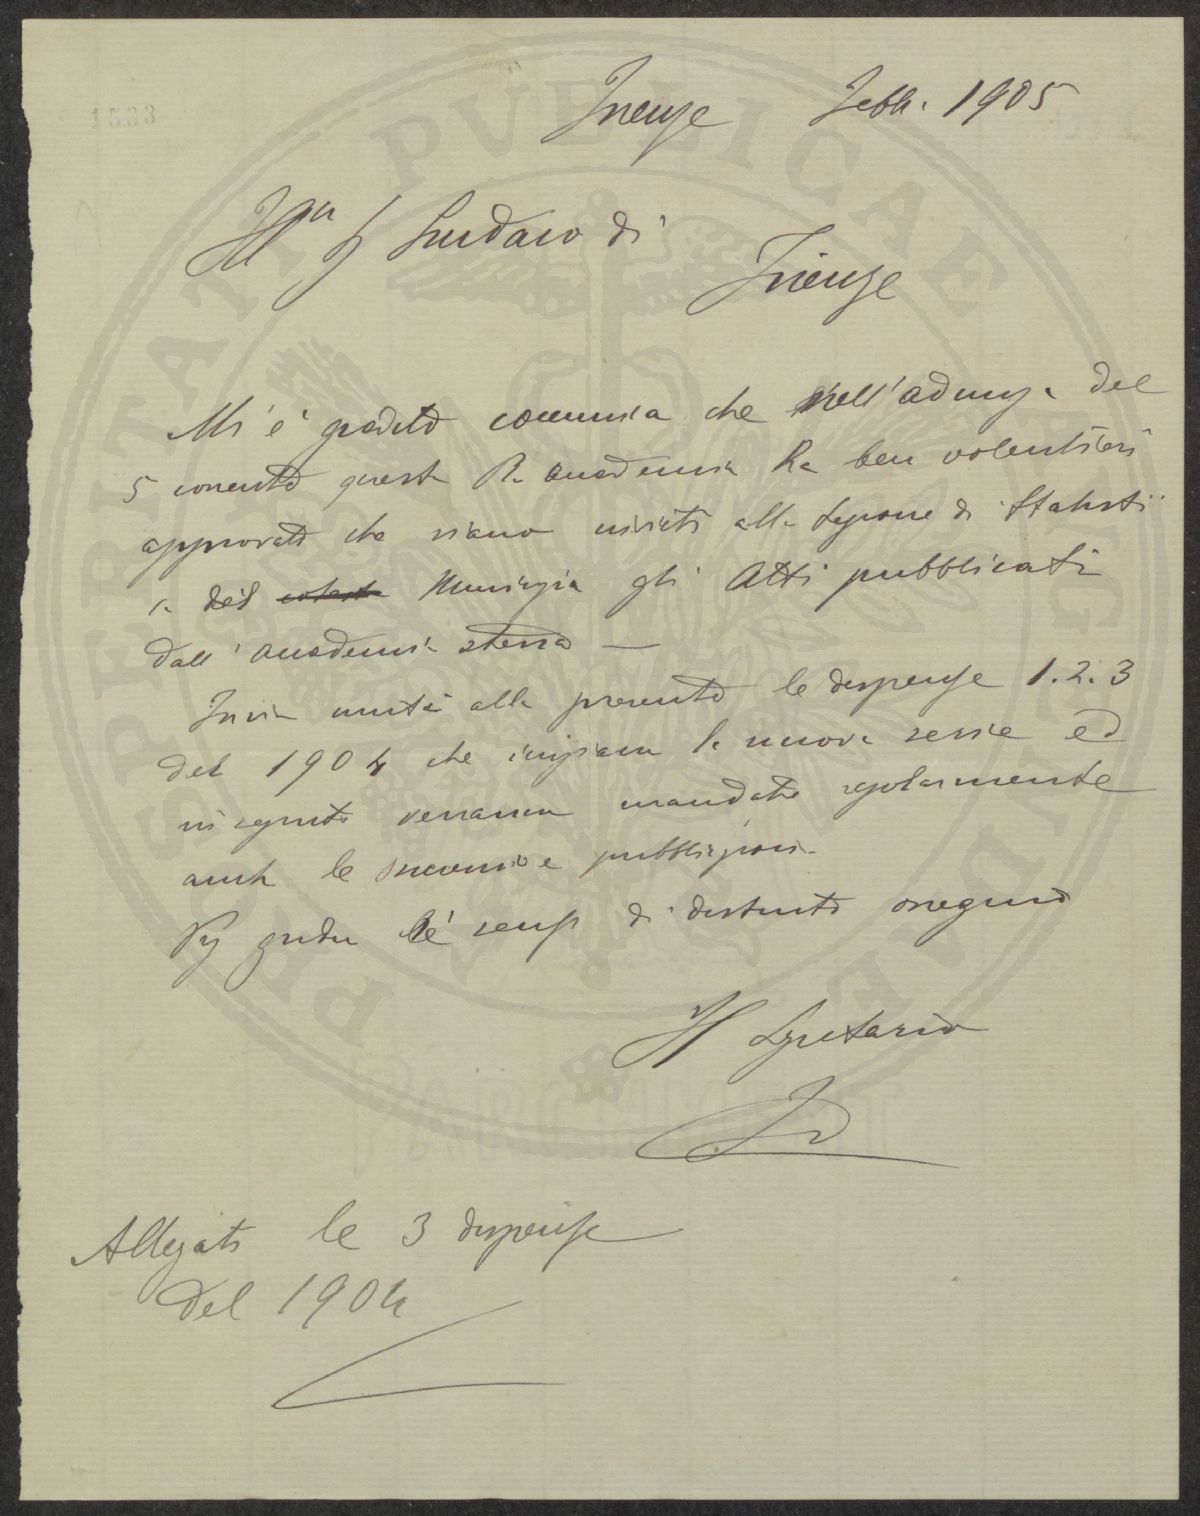 Firenze Febb. 1905
Ill.mo Sg Sindaco di
Firenze
Mi è gradito comunica che nell'adunza del
5 corrente questa R. Accademia ha ben volentieri
approvato che siano inviati alla Sezione di Statisti
ca del cotesto Municipio gli Atti pubblicati
dall'Accademia stessa —
Invio unite alla presente le dispense 1.2.3
del 1904 che iniziano la nuova serie ed
in seguito verranno mandate regolarmente
anche le successive pubblicazioni.
gradu i sensi di distinto ossequio
Il Segretario
Allegati le 3 dispense
del 1904
1583
PROSPERITATI PUBLICAE AUGENDAE